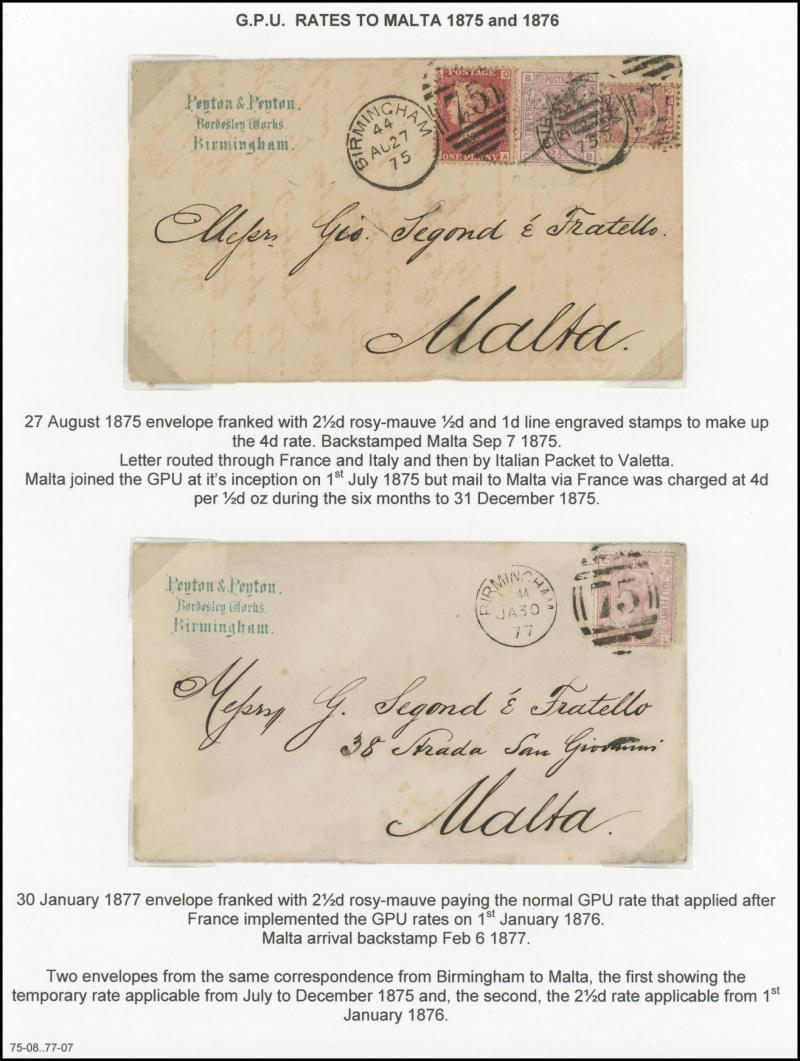 G.P.U.  RATES TO MALTA 1875 and 1876
Peyton & Peyton.
Bordesley Works.
Birmingham.
BIRMINGHAM
44
AU27
75
POSTAGE
ONE PENNY
75
Messrs Gio. Segond & Fratello.
Malta.
27 August 1875 envelope franked with 2½d rosy-mauve ½d and 1d line engraved stamps to make up
the 4d rate. Backstamped Malta Sep 7 1875.
Letter routed through France and Italy and then by Italian Packet to Valetta.
Malta joined the GPU at it's inception on 1st July 1875 but mail to Malta via France was charged at 4d
per ½d oz during the six months to 31 December 1875.
Peyton & Peyton.
Bordesley Works.
Birmingham.
BIRMINGHAM
44
JA30
77
75
Messrs G. Segond & Fratello
38 Strada San Giovanni
Malta.
30 January 1877 envelope franked with 2½d rosy-mauve paying the normal GPU rate that applied after
France implemented the GPU rates on 1st January 1876.
Malta arrival backstamp Feb 6 1877.
Two envelopes from the same correspondence from Birmingham to Malta, the first showing the
temporary rate applicable from July to December 1875 and, the second, the 2½d rate applicable from 1st
January 1876.
75-08..77-07